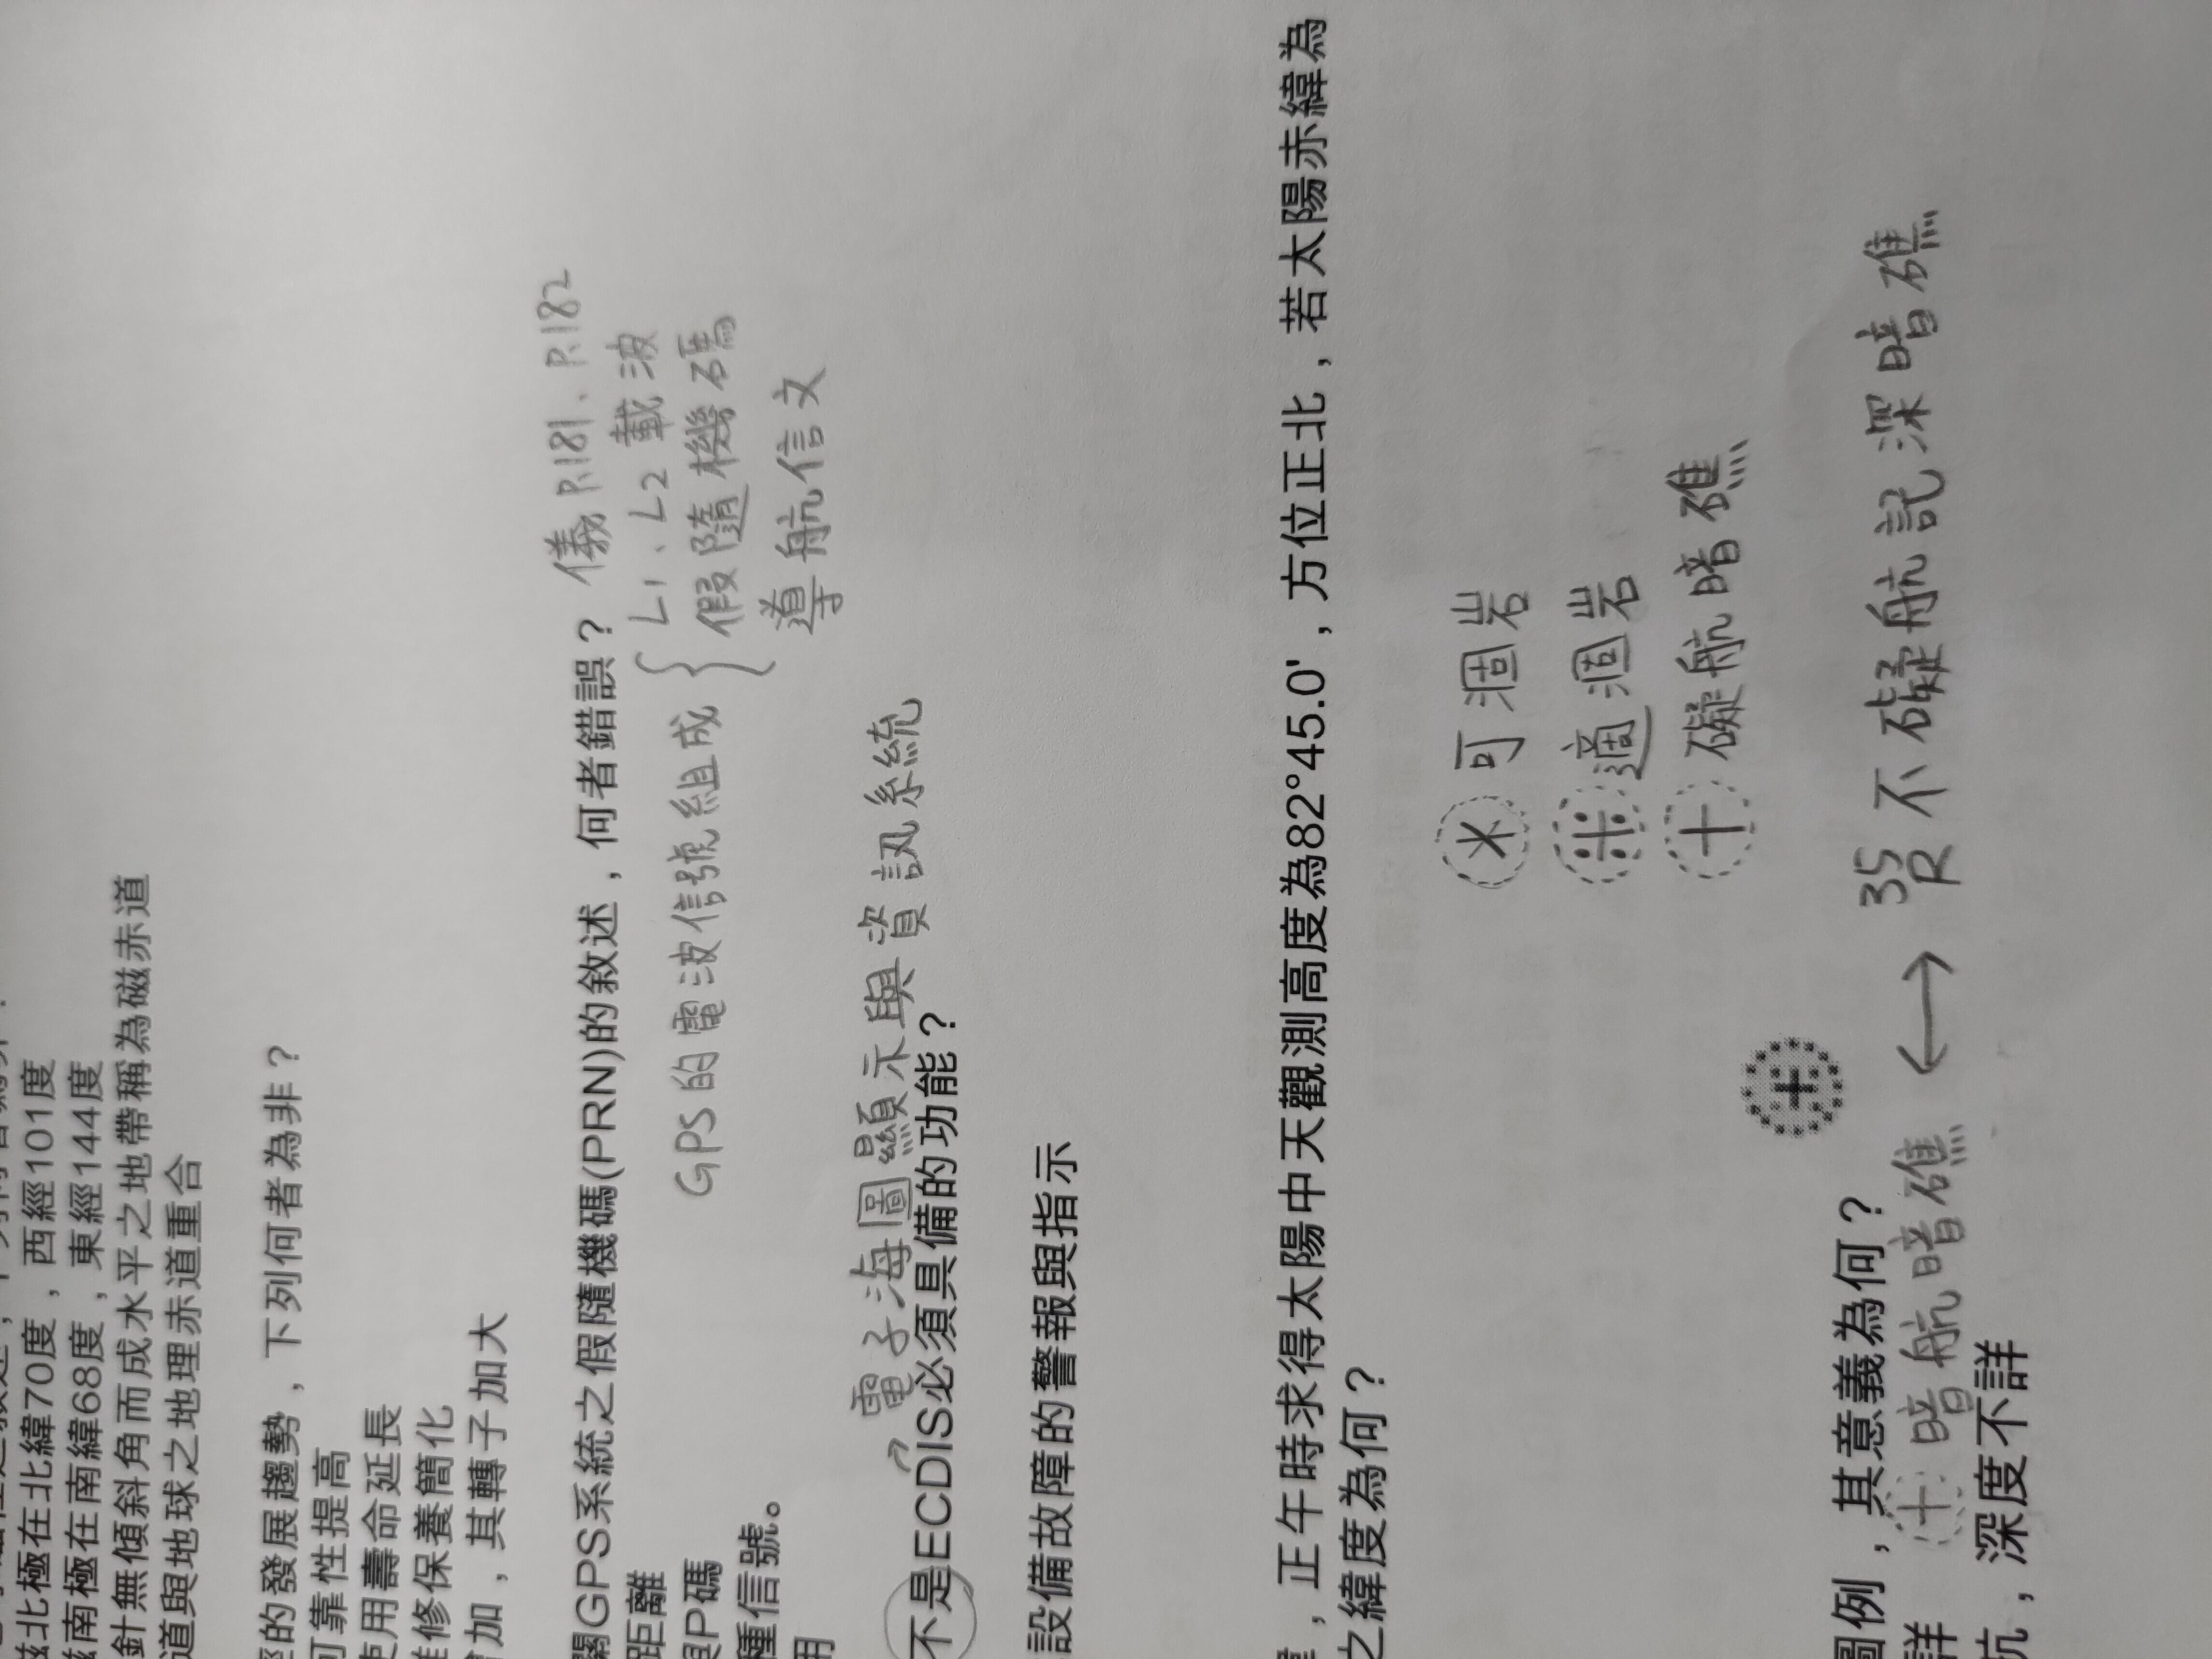 磁北極在北緯70度，西經101度
磁南極在南緯68度，東經144度
針無傾斜角而成水平之地帶稱為磁赤道
道與地球之地理赤道重合
的發展趨勢，下列何者為非？
可靠性提高
使用壽命延長
維修保養簡化
加，其轉子加大
關GPS系統之假隨機碼(PRN)的敘述，何者錯誤？ 儀 P.181、P.182
距離
GPS的電波信號組成 { L1、L2 載波
與P碼
假隨機碼
種信號。
導航信文
用
電子海圖顯示與資訊系統
不是ECDIS必須具備的功能？
設備故障的警報與指示
，正午時求得太陽中天觀測高度為82°45.0'，方位正北，若太陽赤緯為
之緯度為何？
可涸岩
適涸岩
礙航暗礁
圖例，其意義為何？
詳
暗航暗礁 ⟷ 35 R 不礙航記深暗礁
航，深度不詳